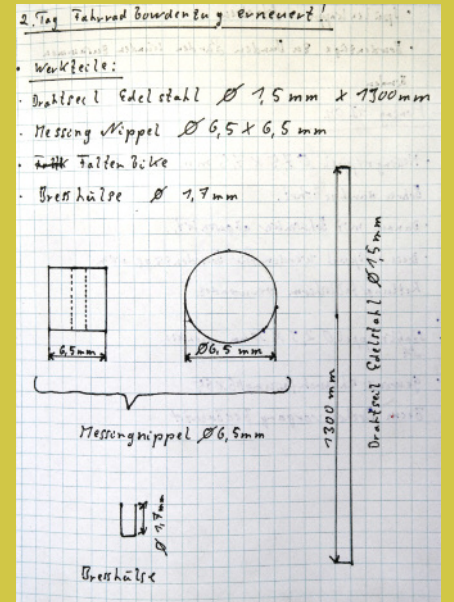 2. Tag Fahrrad Bowdenzug erneuert!
• Werkteile:
· Drahtseil Edelstahl Ø 1,5 mm x 1300 mm
· Messing Nippel Ø 6,5 x 6,5 mm
· Falten bike
· Bresshülse Ø 1,7 mm
6,5 mm
Ø 6,5 mm
Messingnippel Ø 6,5mm
1300 mm
Drahtseil Edelstahl Ø 1,5 mm
Ø 1,7 mm
Bresshülse